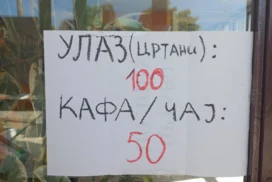 УЛАЗ(цртани):
100
КАФА/ЧАЈ:
50